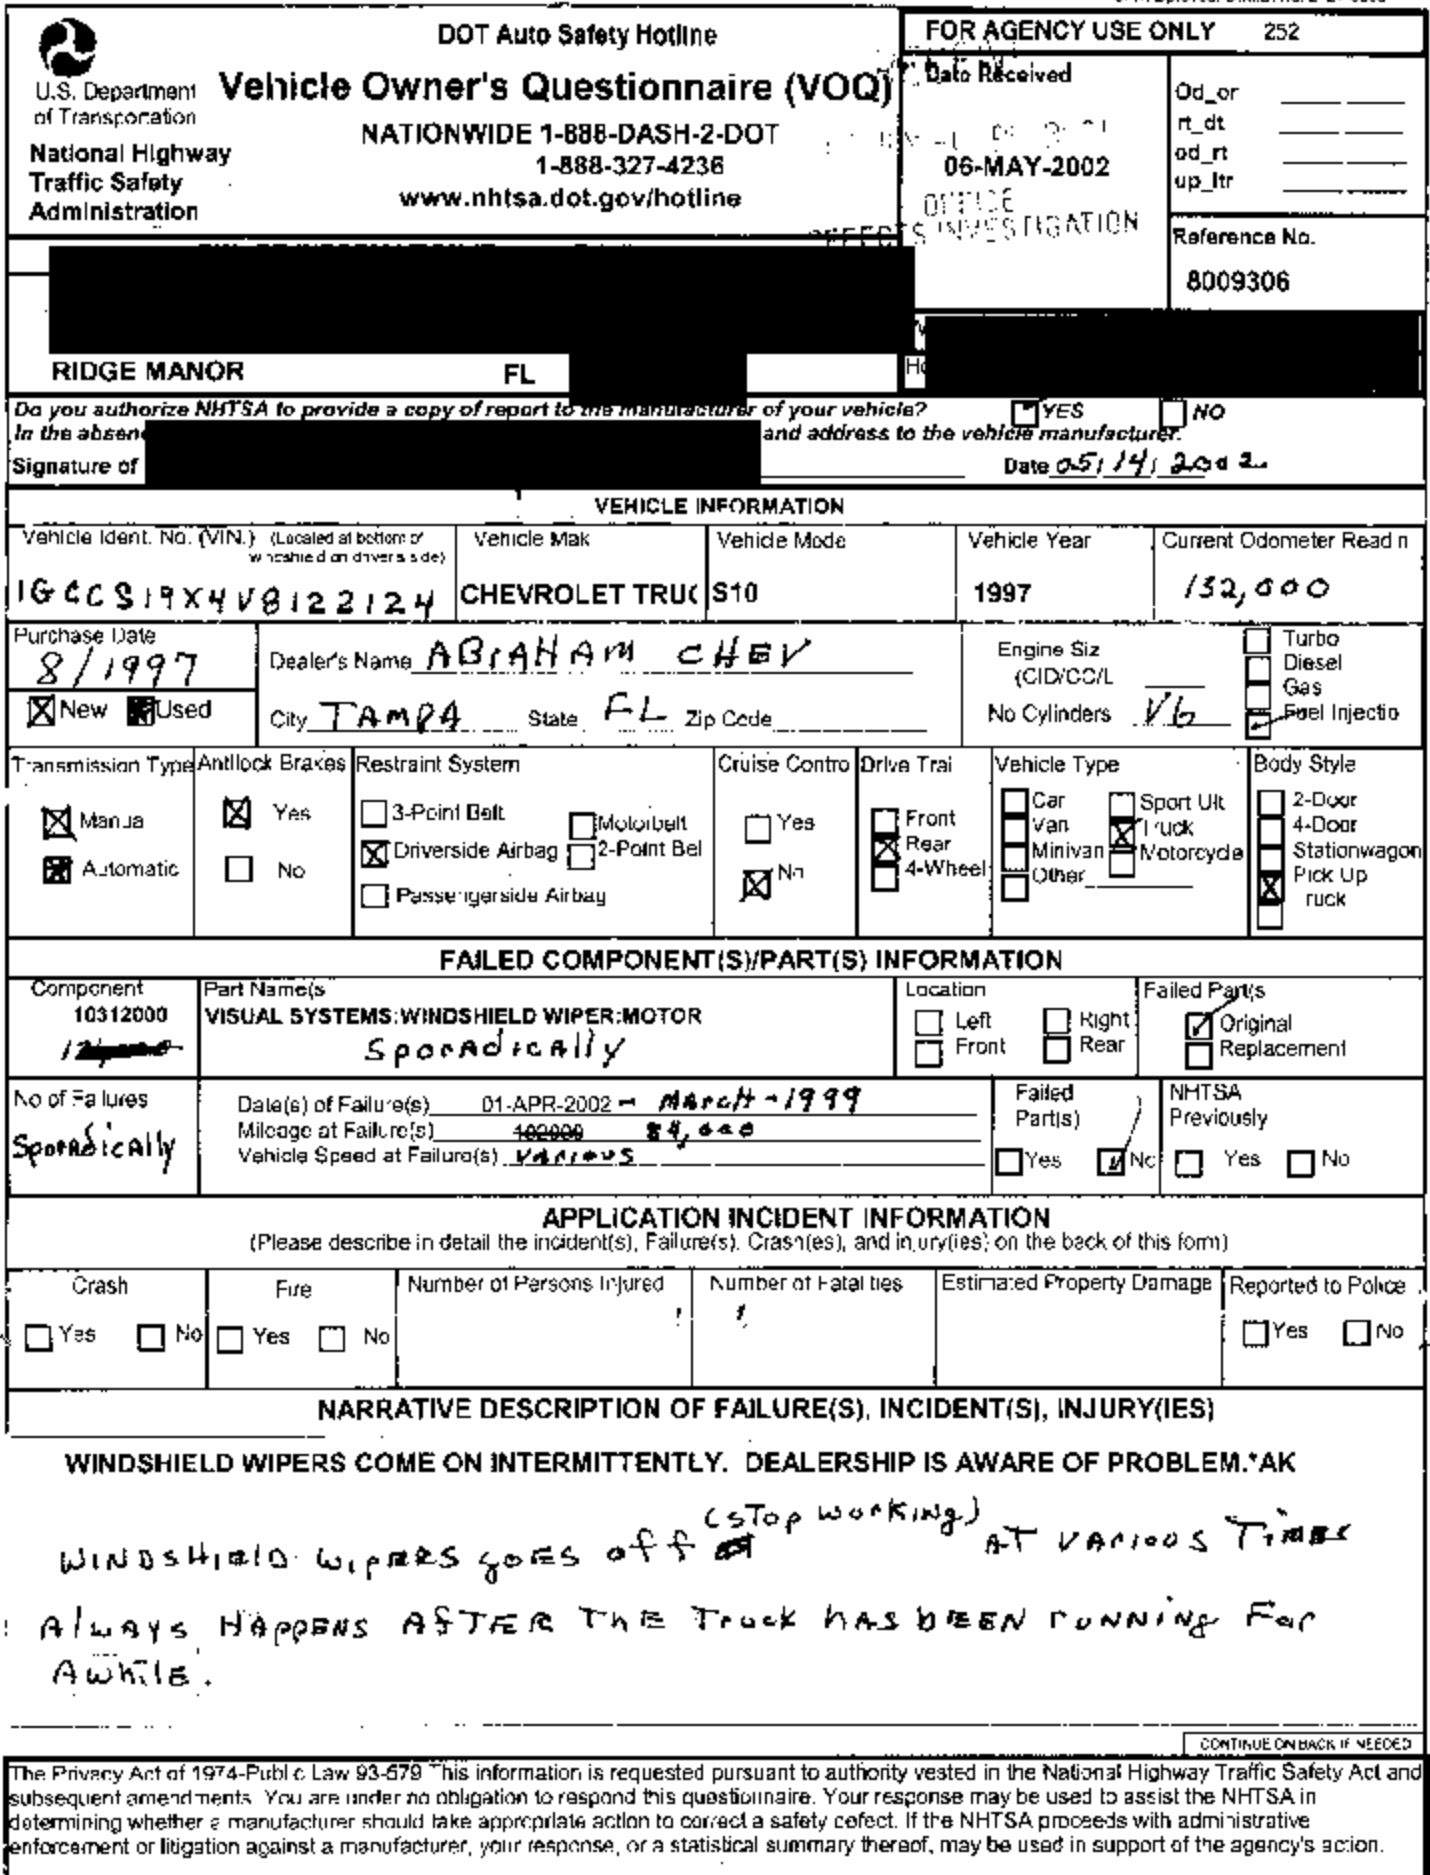 DOT Auto Safety Hotline
Vehicle Owner's Questionnaire (VOQ)
NATIONWIDE 1-888-DASH-2-DOT
1-888-327-4236
www.nhtsa.dot.gov/hotline
U.S. Department
of Transportation
National Highway
Traffic Safety
Administration
FOR AGENCY USE ONLY 252
Date Received
06-MAY-2002
OFFICE
DEFECTS INVESTIGATION
Od_or
rt_dt
od_rt
up_ltr
Reference No.
8009306
RIDGE MANOR FL
Do you authorize NHTSA to provide a copy of report to the manufacturer of your vehicle? YES NO
In the absen and address to the vehicle manufacturer.
Signature of Date 05/14/2002
VEHICLE INFORMATION
Vehicle Ident. No. (VIN.) (Located at bottom of
windshield on driver's side)
1GCCS19X4V8122124
Vehicle Mak
CHEVROLET TRUC
Vehicle Mode
S10
Vehicle Year
1997
Current Odometer Readin
132,000
Purchase Date
8/1997
New Used
Dealer's Name ABrAHAM CHEV
City TAMPA State FL Zip Code
Engine Siz
(CID/CC/L
No Cylinders V6
Turbo
Diesel
Gas
Fuel Injectio
Transmission Type
Manua
Automatic
Antilock Brakes
Yes
No
Restraint System
3-Point Belt
Motorbelt
Driverside Airbag
2-Point Bel
Passengerside Airbag
Cruise Contro
Yes
No
Drive Trai
Front
Rear
4-Wheel
Vehicle Type
Car
Van
Minivan
Other
Sport Ult
Truck
Motorcycle
Body Style
2-Door
4-Door
Stationwagon
Pick Up
ruck
FAILED COMPONENT(S)/PART(S) INFORMATION
Component
10312000
Part Name(s
VISUAL SYSTEMS:WINDSHIELD WIPER:MOTOR
SporAdicAlly
Location
Left Right
Front Rear
Failed Part(s
Original
Replacement
No of Failures
SporAdicAlly
Date(s) of Failure(s) 01-APR-2002 - MArcH-1999
Mileage at Failure(s) 102000 84,000
Vehicle Speed at Failure(s) VArious
Failed
Part(s)
Yes No
NHTSA
Previously
Yes No
APPLICATION INCIDENT INFORMATION
(Please describe in detail the incident(s), Failure(s), Crash(es), and injury(ies) on the back of this form)
Crash
Yes No
Fire
Yes No
Number of Persons Injured
Number of Fatalities
Estimated Property Damage
Reported to Police
Yes No
NARRATIVE DESCRIPTION OF FAILURE(S), INCIDENT(S), INJURY(IES)
WINDSHIELD WIPERS COME ON INTERMITTENTLY. DEALERSHIP IS AWARE OF PROBLEM.*AK
WINDSHIELD WIPERS goES off (STop workINg) AT VArious TIMES
AlwAYS HAppENS AFTER ThE Truck hAS bEEN rUNNINg For
AwhilE.
CONTINUE ON BACK IF NEEDED
The Privacy Act of 1974-Public Law 93-579 This information is requested pursuant to authority vested in the National Highway Traffic Safety Act and
subsequent amendments. You are under no obligation to respond this questionnaire. Your response may be used to assist the NHTSA in
determining whether a manufacturer should take appropriate action to correct a safety defect. If the NHTSA proceeds with administrative
enforcement or litigation against a manufacturer, your response, or a statistical summary thereof, may be used in support of the agency's action.